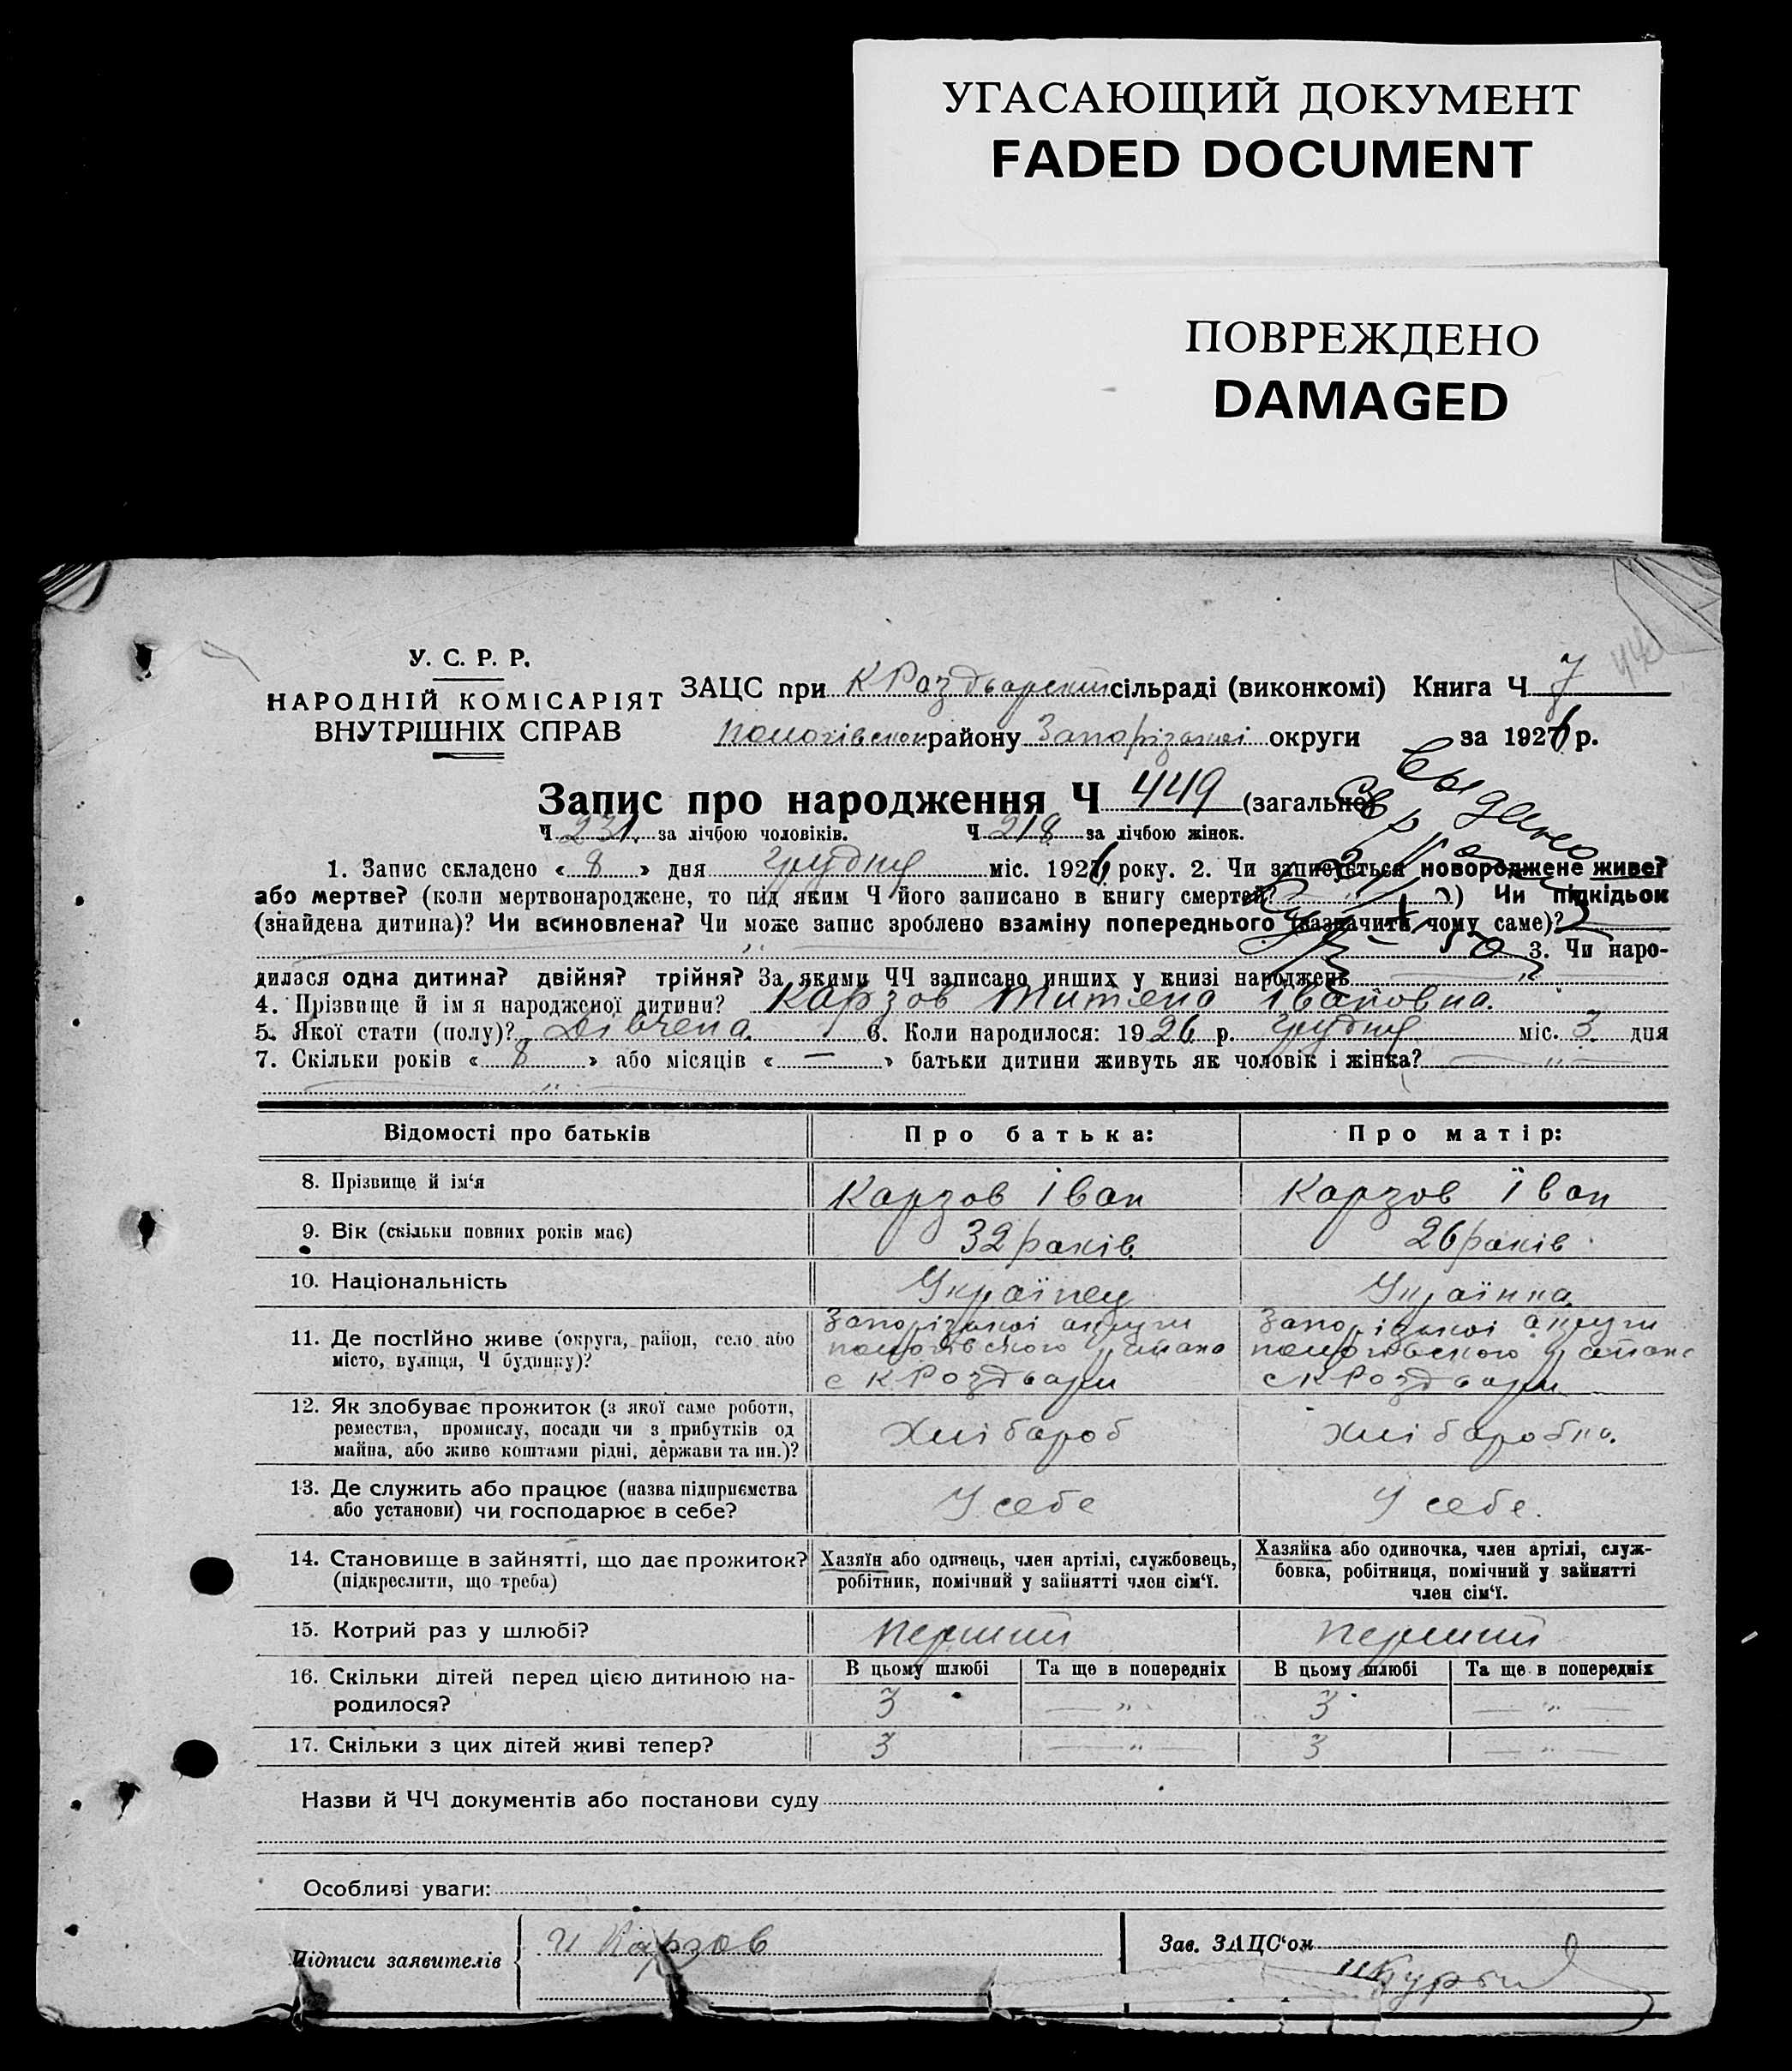 УГАСАЮЩИЙ ДОКУМЕНТ
FADED DOCUMENT
ПОВРЕЖДЕНО
DAMAGED
У. С. Р. Р.
НАРОДНІЙ КОМІСАРІЯТ
ВНУТРІШНІХ СПРАВ
ЗАЦС при К Роздварский сільраді (виконкомі) Книга Ч 7
Пологівского району Запорізької округи за 1926 р.
Запис про народження Ч 449 (загальне)
Ч 231 за лічбою чоловіків. Ч 218 за лічбою жінок.
1. Запис складено « 8 » дня грудня міс. 1926 року. 2. Чи записується новороджене живе?
або мертве? (коли мертвонароджене, то під яким Ч його записано в книгу смертей? ) Чи підкідьок
(знайдена дитина)? Чи всиновлена? Чи може запис зроблено взаміну попереднього (зазначити чому саме)?
3. Чи наро-
дилася одна дитина? двійня? трійня? За якими ЧЧ записано инших у книзі народжень
4. Прізвище й імя народженої дитини? Карзов Титяна Івановна.
5. Якої стати (полу)? Дівчена. 6. Коли народилося: 1926 р. грудня міс. 3 дня
7. Скільки років « 8 » або місяців « — » батьки дитини живуть як чоловік і жінка?
Відомості про батьків Про батька: Про матір:
8. Прізвище й ім‘я Карзов Іван Карзов Іван
9. Вік (скільки повних років має) 32 раків 26 раків
10. Національність Українец Українка
11. Де постІйно живе (округа, район, село або
місто, вулиця, Ч будинку)?
Запорізької округи
пологівского района
с К Роздвари
Запорізької округи
пологівского района
с К Роздвари
12. Як здобуває прожиток (з якої саме роботи,
ремества, промислу, посади чи з прибутків од
майна, або живе коштами рідні, держави та ин.)?
Хлібароб Хлібаробка.
13. Де служить або працює (назва підприємства
або установи) чи господарює в себе?
У себе У себе.
14. Становище в зайнятті, що дає прожиток?
(підкреслити, що треба)
Хазяїн або одинець, член артілі, службовець,
робітник, помічний у зайнятті член сім‘ї.
Хазяйка або одиночка, член артілі, служ-
бовка, робітниця, помічний у зайнятті
член сім‘ї.
15. Котрий раз у шлюбі? Перший Перший
16. Скільки дітей перед цією дитиною на-
родилося?
В цьому шлюбі Та ще в попередніх В цьому шлюбі Та ще в попередніх
3 — „ — 3 — „ —
17. Скільки з цих дітей живі тепер? 3 — „ — 3 — „ —
Назви й ЧЧ документів або постанови суду
Особливі уваги:
Підписи заявителів И Карзов Зав. ЗАЦС‘ом